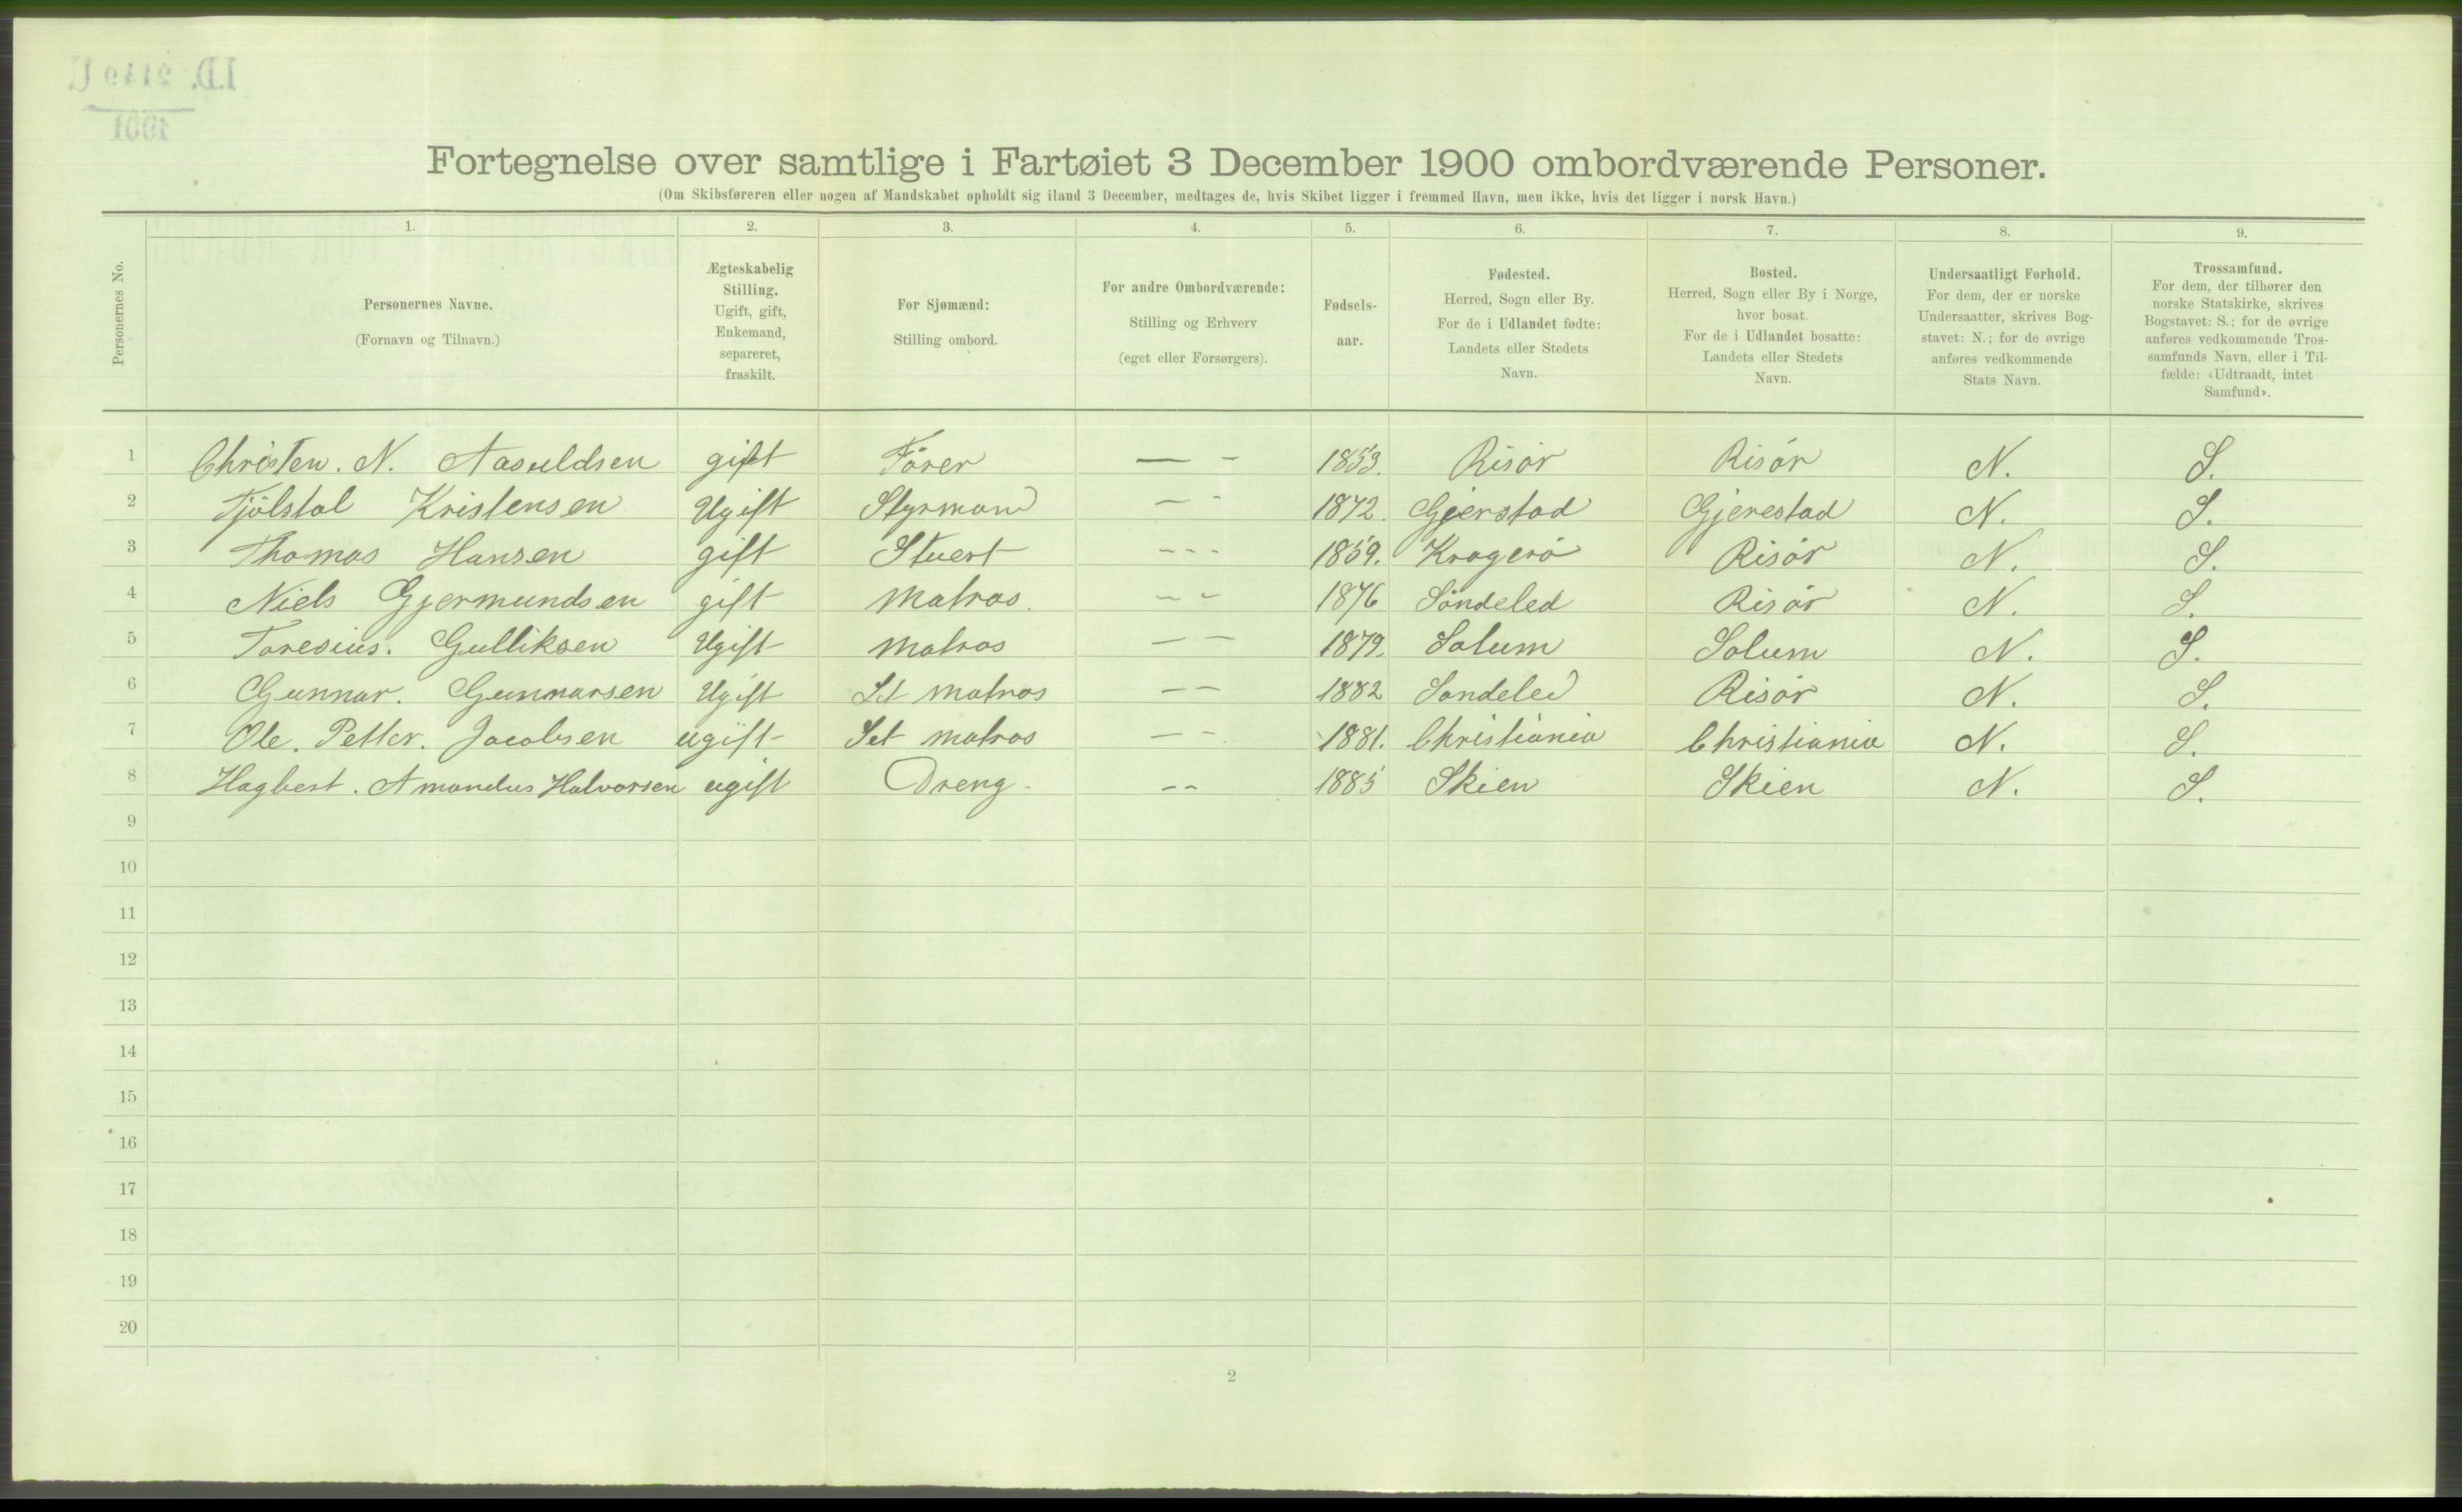 I.D. 2149 U.
1901
Fortegnelse over samtlige i Fartøiet 3 December 1900 ombordværende Personer.
(Om Skibsføreren eller nogen af Mandskabet opholdt sig iland 3 December, medtages de, hvis Skibet ligger i fremmed Havn, men ikke, hvis det ligger i norsk Havn.)
Personernes No.
1. 2. 3. 4. 5. 6. 7. 8. 9.
Personernes Navne.
(Fornavn og Tilnavn.)
Ægteskabelig
Stilling.
Ugift, gift,
Enkemand,
separeret,
fraskilt.
For Sjømænd:
Stilling ombord.
For andre Ombordværende:
Stilling og Erhverv
(eget eller Forsørgers).
Fødsels-
aar.
Fødested.
Herred, Sogn eller By.
For de i Udlandet fødte:
Landets eller Stedets
Navn.
Bosted.
Herred, Sogn eller By i Norge,
hvor bosat.
For de i Udlandet bosatte:
Landets eller Stedets
Navn.
Undersaatligt Forhold.
For dem, der er norske
Undersaatter, skrives Bog-
stavet: N.; for de øvrige
anføres vedkommende
Stats Navn.
Trossamfund.
For dem, der tilhører den
norske Statskirke, skrives
Bogstavet: S.; for de øvrige
anføres vedkommende Tros-
samfunds Navn, eller i Til-
fælde: «Udtraadt, intet
Samfund».
1 Christen. N. Aasuldsen gift Förer — - 1853. Risör Risör N. S.
2 Tjölstal Kristensen Ugift Styrmand — - 1872. Gjerstad Gjerestad N. S.
3 Thomas Hansen gift Stuert - - - 1859. Kragerö Risör N. S.
4 Niels Gjermundsen gift Matros. - - 1876 Söndeled Risör N. S.
5 Toresius. Gulliksen Ugift Matros — — 1879. Solum Solum N. S.
6 Gunnar. Gunnarsen Ugift Let matros — — 1882 Sondeled Risör N. S.
7 Ole. Petter. Jacobsen ugift Let matros — - 1881. Christiania Christiania N. S.
8 Hagbert. Amandus Halvorsen ugift Dreng - - 1885 Skien Skien N. S.
9
10
11
12
13
14
15
16
17
18
19
20
2